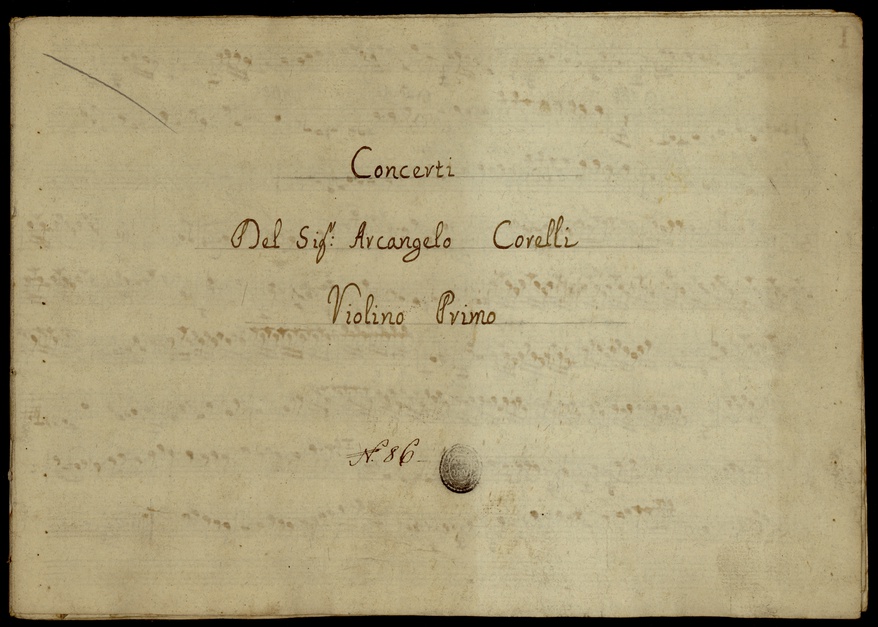 Concerti
Del Sig.r: Arcangelo Corelli
Violino Primo
N.º 86